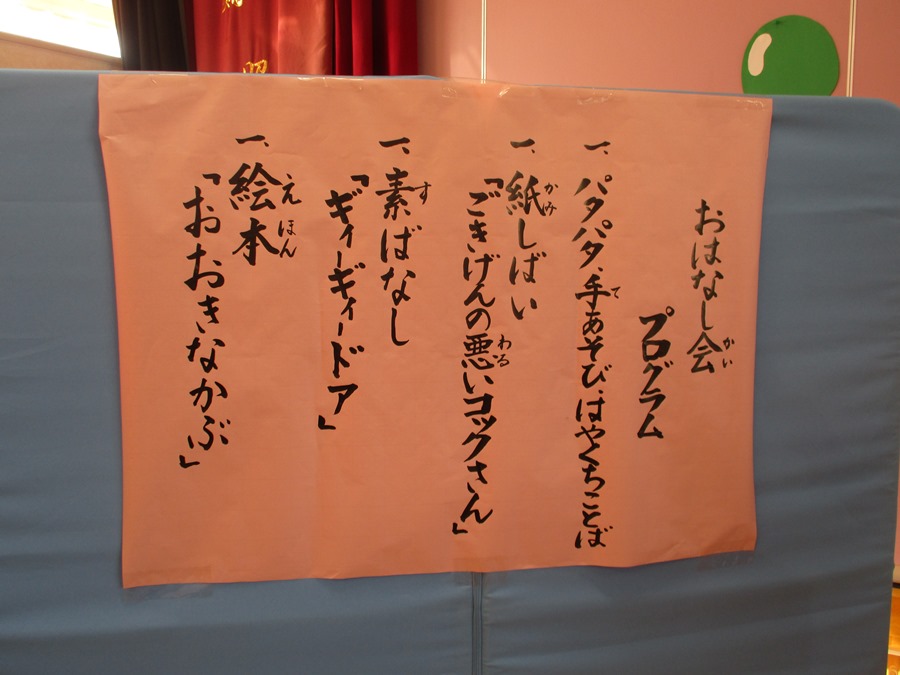 おはなし会
かい
プログラム
一、パタパタ、手あそび、はやくちことば
て
一、紙しばい
かみ
「ごきげんの悪いコックさん」
わる
一、素ばなし
す
「ギィーギィードア」
一、絵本
えほん
「おおきなかぶ」
昭